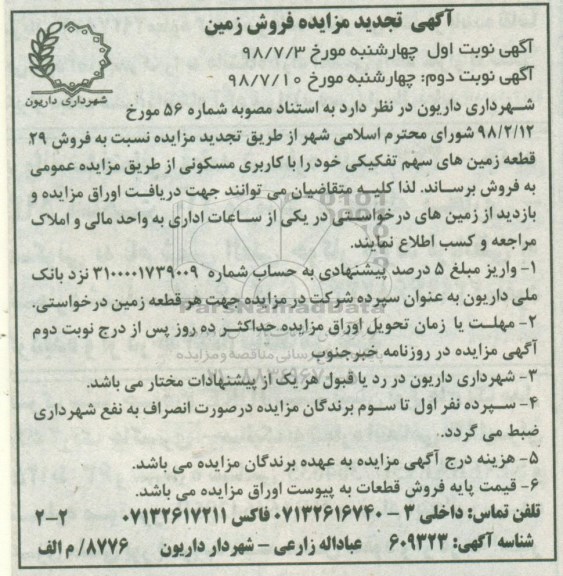 آگهی تجدید مزایده فروش زمین
آگهی نوبت اول: چهارشنبه مورخ ۹۸/۷/۳
آگهی نوبت دوم: چهارشنبه مورخ ۹۸/۷/۱۰
شهرداری داریون
شهرداری داریون در نظر دارد به استناد مصوبه شماره ۵۶ مورخ
۹۸/۲/۱۲ شورای محترم اسلامی شهر از طریق تجدید مزایده نسبت به فروش ۲۹
قطعه زمین های سهم تفکیکی خود را با کاربری مسکونی از طریق مزایده عمومی
به فروش برساند. لذا کلیه متقاضیان می توانند جهت دریافت اوراق مزایده و
بازدید از زمین های درخواستی در یکی از ساعات اداری به واحد مالی و املاک
مراجعه و کسب اطلاع نمایند.
۱- واریز مبلغ ۵ درصد پیشنهادی به حساب شماره ۳۱۰۰۰۰۱۷۳۹۰۰۹ نزد بانک
ملی داریون به عنوان سپرده شرکت در مزایده جهت هر قطعه زمین درخواستی.
۲- مهلت یا زمان تحویل اوراق مزایده حداکثر ده روز پس از درج نوبت دوم
آگهی مزایده در روزنامه خبرجنوب
۳- شهرداری داریون در رد یا قبول هر یک از پیشنهادات مختار می باشد.
۴- سپرده نفر اول تا سوم برندگان مزایده درصورت انصراف به نفع شهرداری
ضبط می گردد.
۵- هزینه درج آگهی مزایده به عهده برندگان مزایده می باشد.
۶- قیمت پایه فروش قطعات به پیوست اوراق مزایده می باشد.
تلفن تماس: داخلی ۳ - ۰۷۱۳۲۶۱۶۷۴۰ فاکس ۰۷۱۳۲۶۱۷۲۱۱ ۲-۲
شناسه آگهی: ۶۰۹۳۷۳ عباداله زارعی - شهردار داریون ۸۷۷۶/ م الف
ParsNamadData